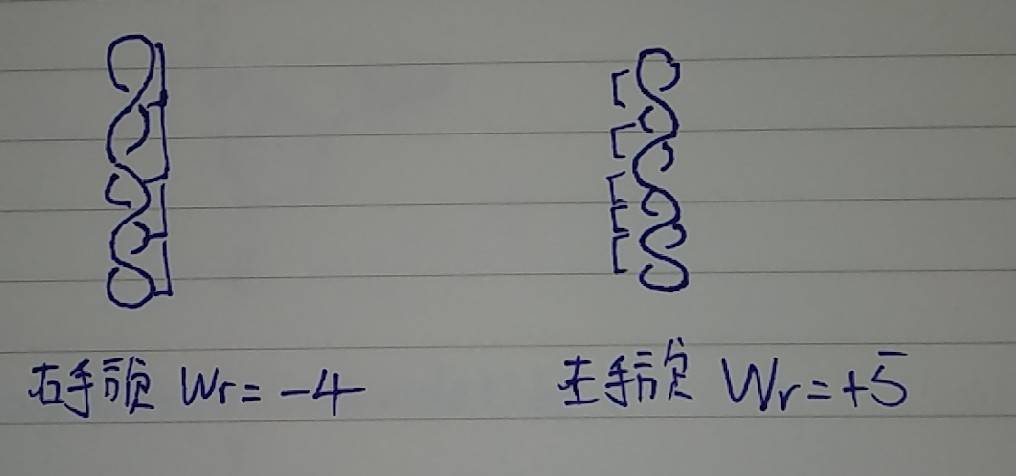 右手 Wr = -4
左手 Wr = +5